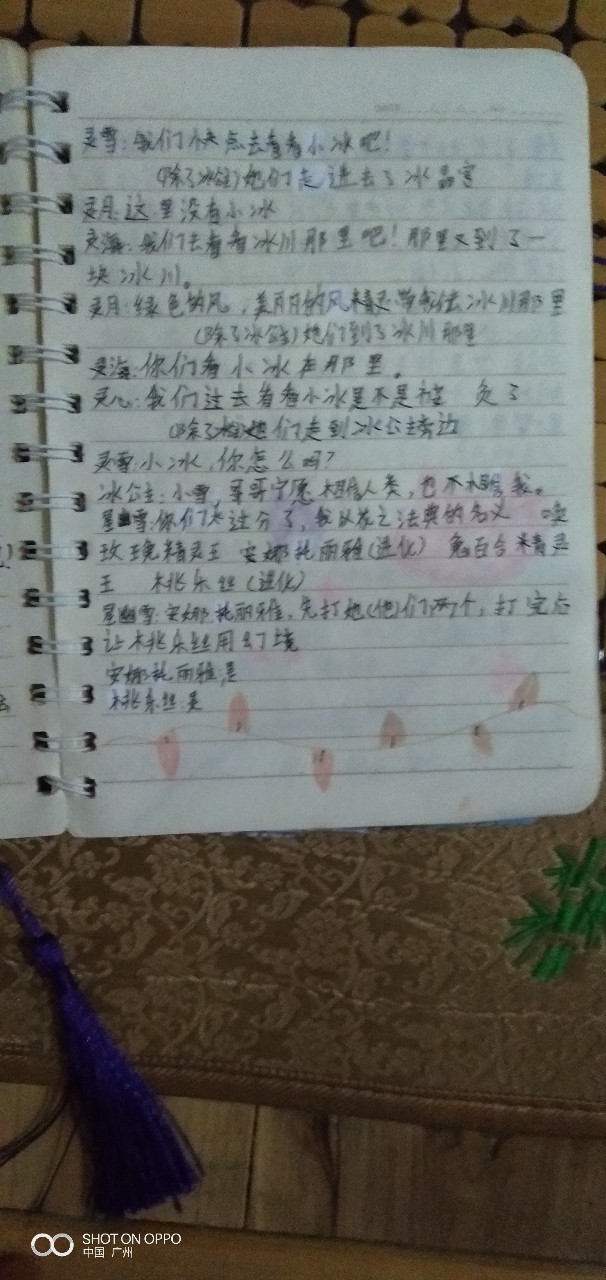 灵雪:我们快点去看看小冰吧!
(除了冰公主)她们走进去了冰晶宫
灵月:这里没有小冰
灵海:我们去看看冰川那里吧!那里又到了一
块冰川。
灵月:绿色的风,美丽的风精灵带我们去冰川那里
(除了冰公主)她们到了冰川那里
灵海:你们看小冰在那里。
灵心:我们过去看看小冰是不是被 负了
(除了冰公主)她们走到冰公主旁边
灵雪:小冰,你怎么吗?
冰公主:小雪,哥哥宁愿相信人类,也不相信我。
星幽雪:你们太过分了,我以花之法典的名义 唤
玫瑰精灵王 安娜托丽雅(进化) 兔百合精灵
王 桃乐丝(进化)
星幽雪:安娜托丽雅,先打她(他)们两个,打完后
让桃乐丝用幻境
安娜托丽雅:是
桃乐丝:是
SHOT ON OPPO
中国 广州